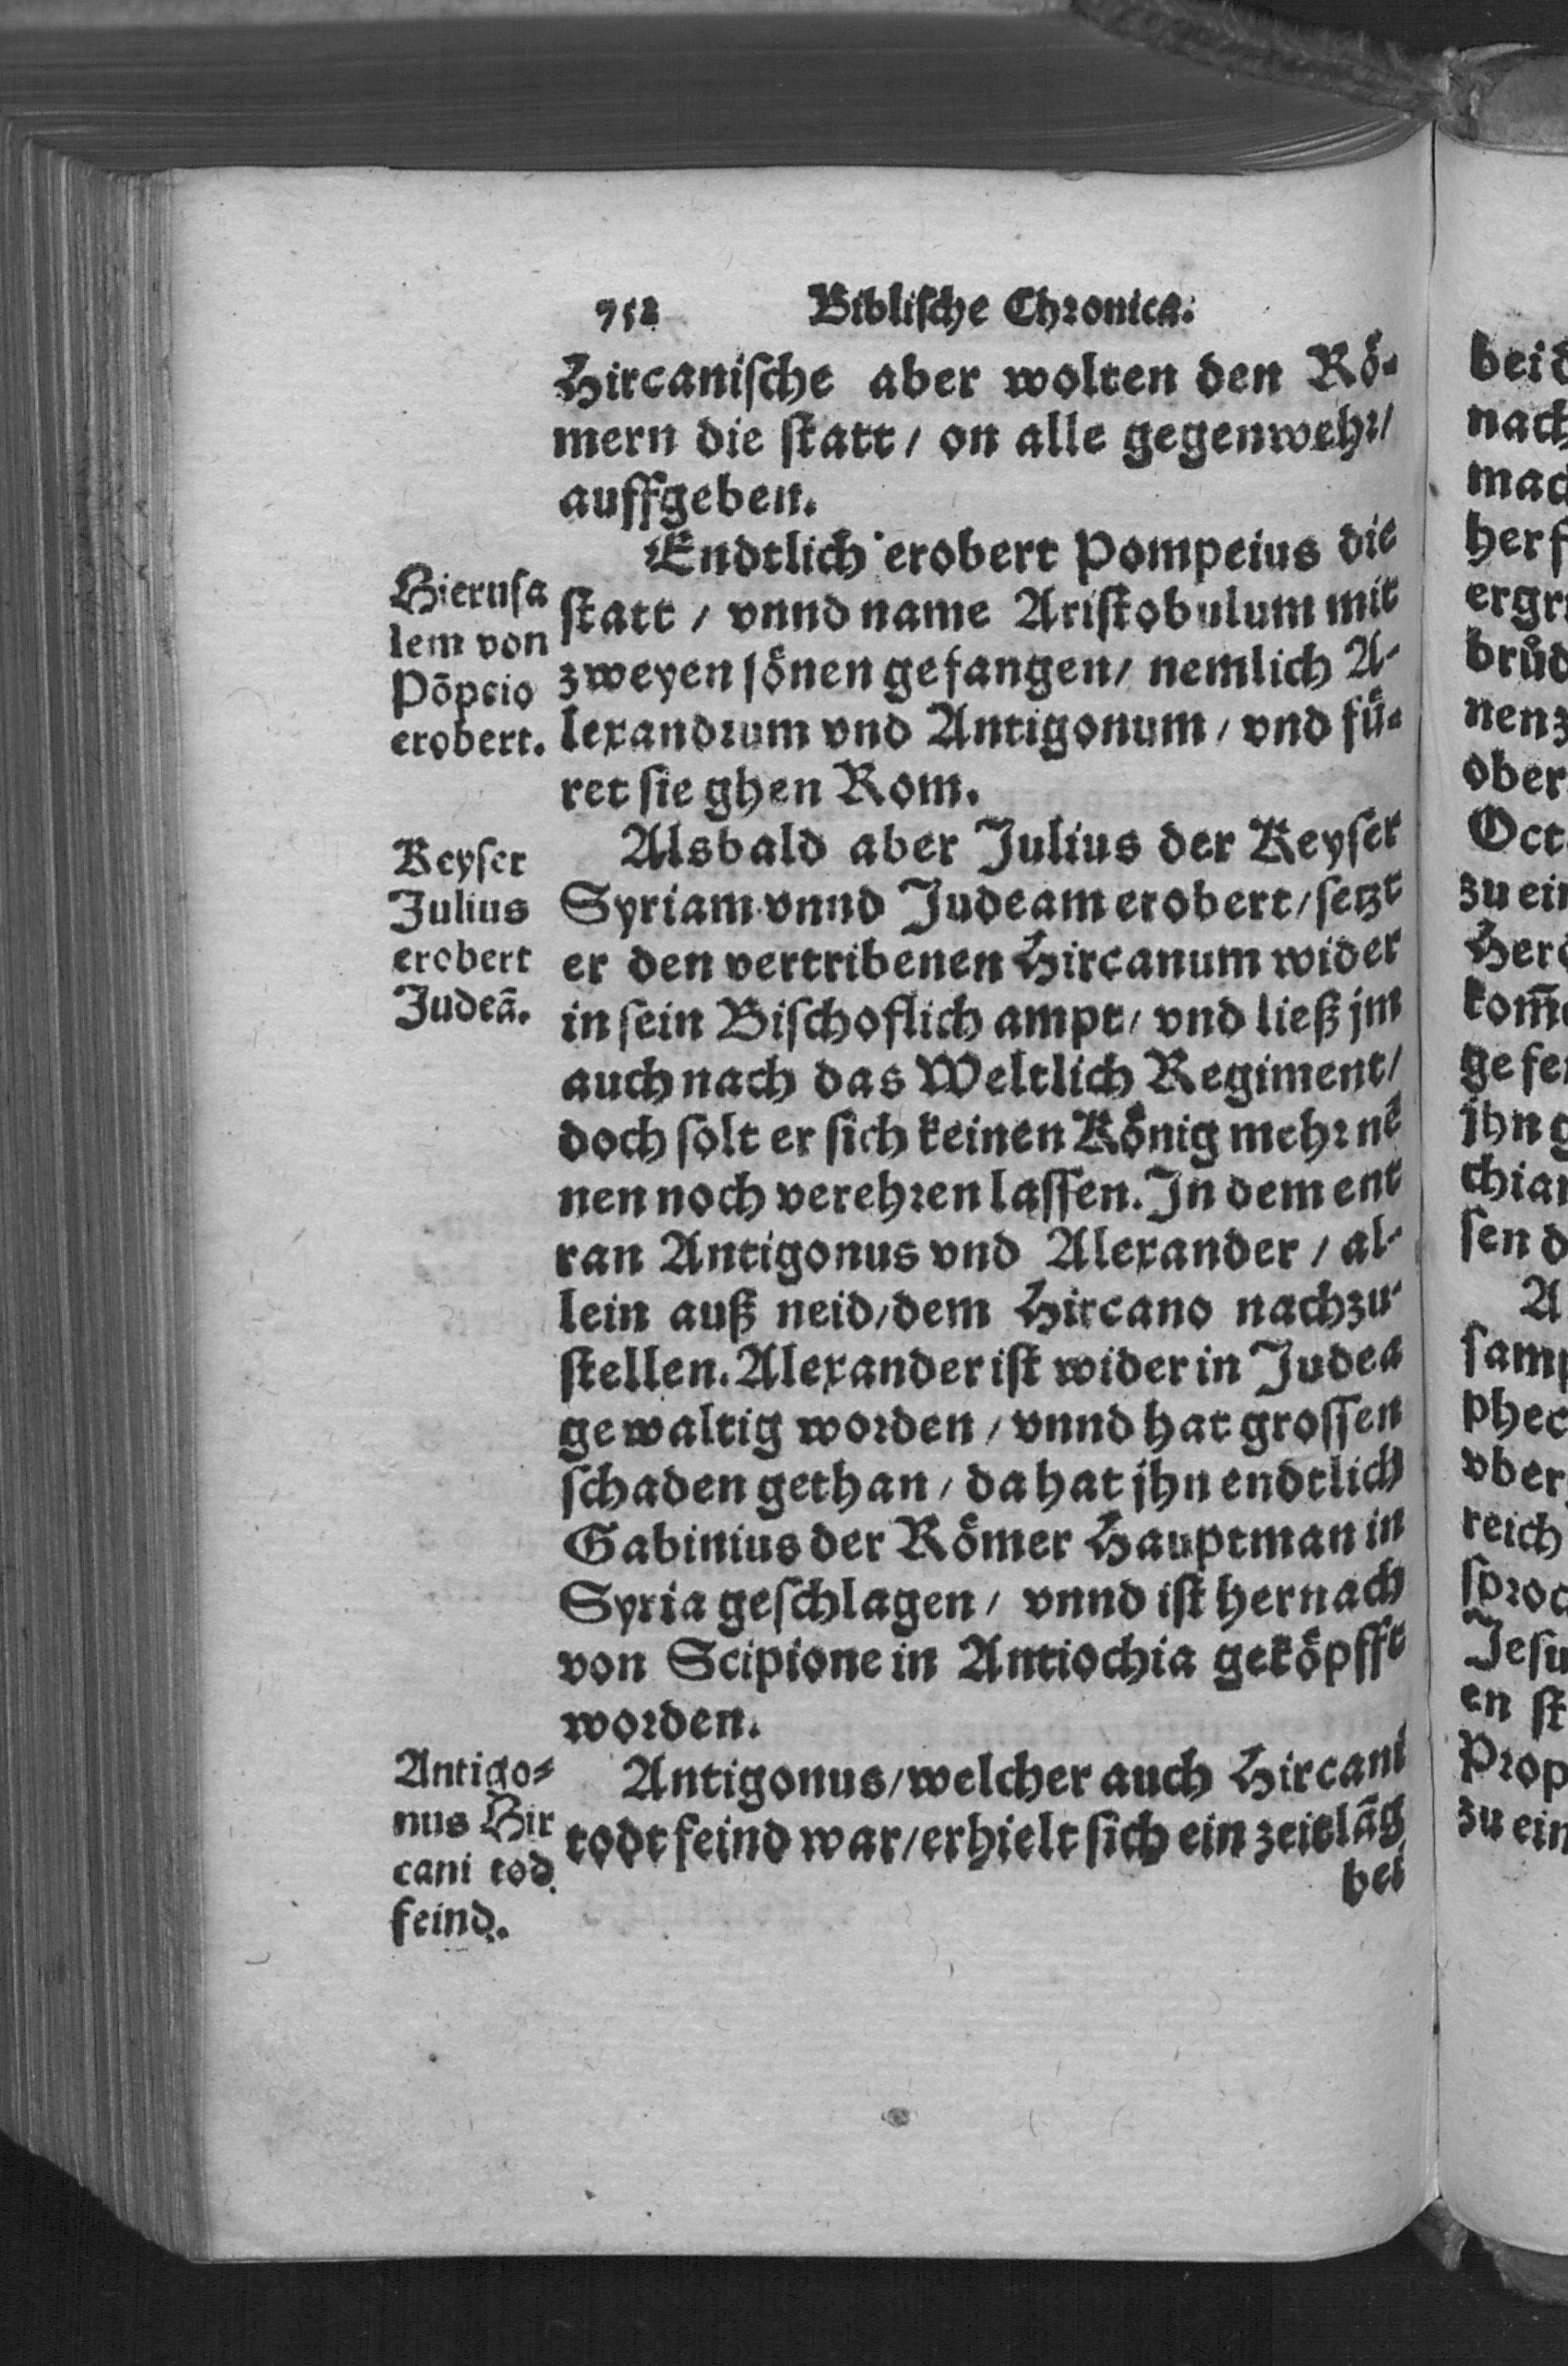 752 Biblische Chronica.
Hircanische aber wolten den Rö-
mern die statt / on alle gegenwehr/
auffgeben.
Endtlich erobert Pompeius die
statt / vnnd name Aristobulum mit
zweyen sönen gefangen / nemlich A-
lexandrum vnd Antigonum / vnd fü-
ret sie ghen Rom.
Hierusa
lem von
Põpeio
erobert.
Alsbald aber Julius der Keyser
Syriam vnnd Judeam erobert / setzt
er den vertribenen Hircanum wider
in sein Bischoflich ampt / vnd ließ jm
auch nach das Weltlich Regiment/
doch solt er sich keinen König mehr nē
nen noch verehren lassen. In dem ent
ran Antigonus vnd Alexander / al-
lein auß neid / dem Hircano nachzu-
stellen. Alexander ist wider in Judea
gewaltig worden / vnnd hat grossen
schaden gethan / da hat jhn endtlich
Gabinius der Römer Hauptman in
Syria geschlagen / vnnd ist hernach
von Scipione in Antiochia geköpfft
worden.
Keyser
Julius
erobert
Judeã.
Antigonus / welcher auch Hircani
todtfeind war / erhielt sich ein zeitlãg
bei
Antigo-
nus Hir
cani tod
feind.
nach
ober
Oct
zu ein
chiar
sen d
A
vber
reich
Jesu
en st
Prop
zu ein